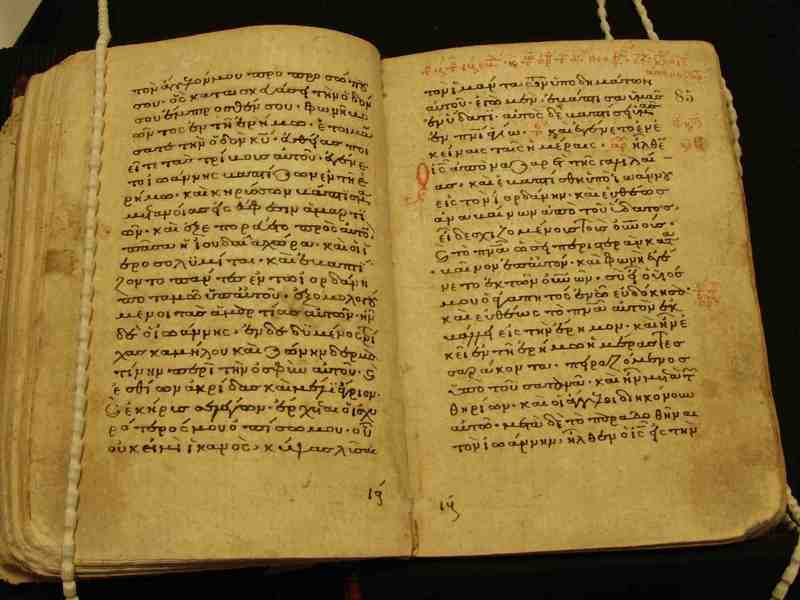 τὸν ἄγγελόν μου πρὸ προσώπου
σου· ὃς κατασκευάσει τὴν ὁδόν
σου ἔμπροσθέν σου· φωνὴ βο
ῶντος ἐν τῇ ἐρήμω· ἑτοιμά
σατε τὴν ὁδὸν κυ· εὐθείας ποι
εῖτε τὰς τρίβους αὐτοῦ· ἐγένε
το ἰωάννης βαπτίζων ἐν τῇ ἐ
ρήμω· καὶ κηρύσσων βάπτισμα
μετανοίας εἰς ἄφεσιν ἁμαρτι
ῶν· καὶ ἐξεπορεύετο πρὸς αὐτὸν
πᾶσα ἡ ἰουδαία χώρα· καὶ οἱ ἱ
εροσολυμῖται· καὶ ἐβαπτί
ζοντο πάντες ἐν τῶ ἰορδάνη
ποταμῶ ὑπ' αὐτοῦ· ἐξομολογού
μενοι τὰς ἁμαρτίας αὐτῶν· ἦν
δὲ ὁ ἰωάννης· ἐνδεδυμένος τρί
χας καμήλου καὶ ζώνην δερμα
τίνην περὶ τὴν ὀσφὺν αὐτοῦ· ϗ
ἐσθίων ἀκρίδας καὶ μέλι ἄγριον·
ϗ ἐκήρυσσε λέγων· ἔρχεται ὁ ἰσχυ
ρότερός μου ὀπίσω μου· οὗ
οὐκ εἰμὶ ἱκανὸς· κύψας λῦσαι
τὸν ἱμάντα τῶν ὑποδημάτων
αὐτοῦ· ἐγὼ μὲν ἐβάπτισα ὑμᾶς
ἐν ὕδατι· αὐτὸς δὲ βαπτίσει ὑμᾶς
ἐν πνι ἁγίω· καὶ ἐγένετο ἐν ἐ
κείναις ταῖς ἡμέραις· ἦλθεν
ὁ ις ἀπὸ ναζαρὲτ τῆς γαλιλαί
ας· καὶ ἐβαπτίσθη ὑπὸ ἰωάννου
εἰς τὸν ἰορδάνην· καὶ εὐθέως
ἀναβαίνων ἀπὸ τοῦ ὕδατος,
εἶδε σχιζομένους τοὺς οὐνούς·
ϗ τὸ πνα ὡσεὶ περιστερὰν κατα
βαῖνον ἐπ' αὐτόν· καὶ φωνὴ ἐγέ
νετο ἐκ τῶν οὐνῶν· σὺ εἶ ὁ υἱός
μου ὁ ἀγαπητὸς ἐν ᾧ εὐδόκησα·
καὶ εὐθέως τὸ πνα αὐτὸν ἐκ
βάλλει εἰς τὴν ἔρημον· καὶ ἦν ἐ
κεῖ ἐν τῇ ἐρήμω ἡμέρας
σαράκοντα· πειραζόμενος
ὑπὸ τοῦ σατανᾶ· καὶ ἦν μετὰ τῶν
θηρίων· καὶ οἱ ἄγγελοι διηκόνουν
αὐτῶ· μετὰ δὲ τὸ παραδοθῆναι
τὸν ἰωάννην, ἦλθεν ὁ ις εἰς τὴν